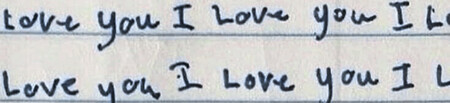 Love you I Love you I L
Love you I Love you I L